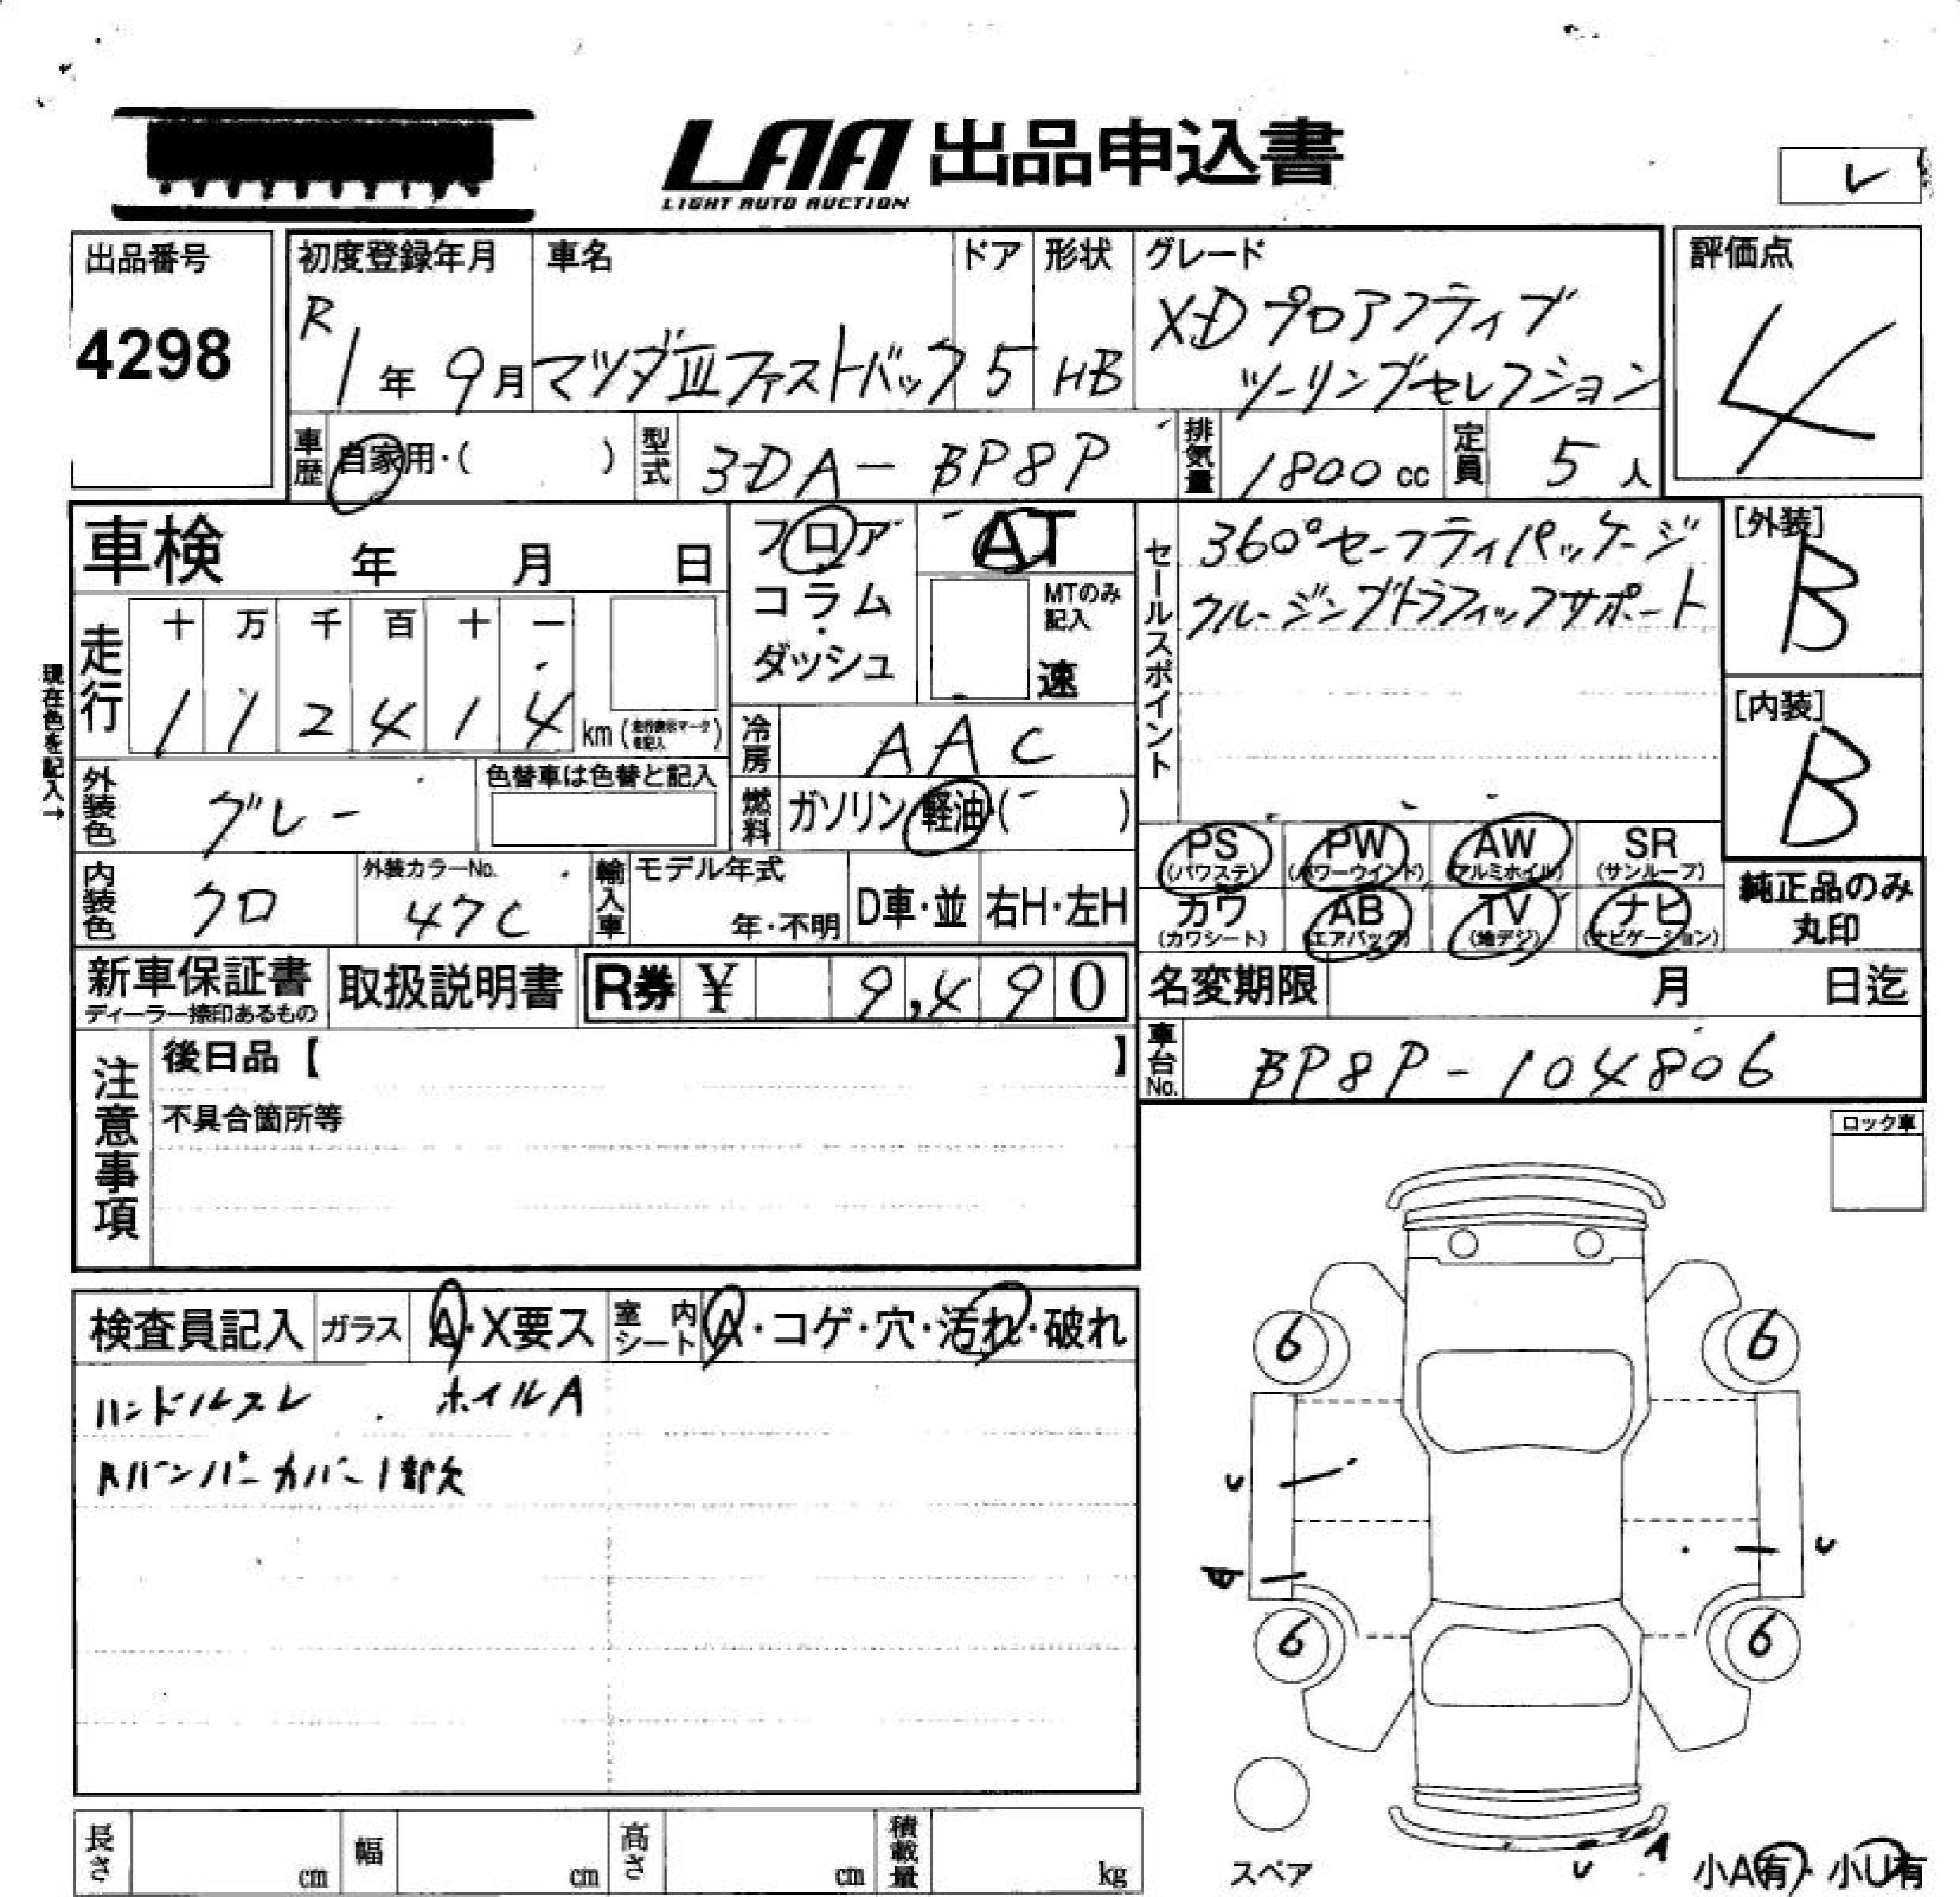 LAA 出品申込書
LIGHT AUTO AUCTION
レ
出品番号
4298
初度登録年月
R
1年 9月
車名
マツダⅢファストバック
ドア
5
形状
HB
グレード
XDプロアクティブ
ツーリングセレクション
評価点
4
車歴 自家用・( )
型式 3DA-BP8P
排気量 1800cc
定員 5人
車検 年 月 日
現在色を記入→
走行
十 万 千 百 十 一
1 1 2 4 1 4 km (走行表示マークを記入)
フロア
コラム
・
ダッシュ
AT
MTのみ
記入
速
冷房 AAC
燃料 ガソリン・軽油・( )
セールスポイント
360°セーフティパッケージ
クルージングトラフィックサポート
[外装]
B
[内装]
B
外装色 グレー
色替車は色替と記入
内装色 クロ
外装カラーNo.
47C
輸入車
モデル年式
年・不明
D車・並
右H・左H
PS PW AW SR
(パワステ) (パワーウインド) (アルミホイル) (サンルーフ)
カワ AB TV ナビ
(カワシート) (エアバック) (地デジ) (ナビゲーション)
純正品のみ
丸印
新車保証書
ディーラー捺印あるもの
取扱説明書
R券 ¥ 9,490
名変期限 月 日迄
車台No. BP8P-104806
注意事項
後日品【 】
不具合箇所等
ロック車
検査員記入 ガラス A・X要ス 室内シート A・コゲ・穴・汚れ・破れ
ハンドルスレ . ホイルA
Rバンパーカバー1部欠
6 6
U
U
6 6
スペア
U A
小A有・小U有
長さ cm 幅 cm 高さ cm 積載量 kg